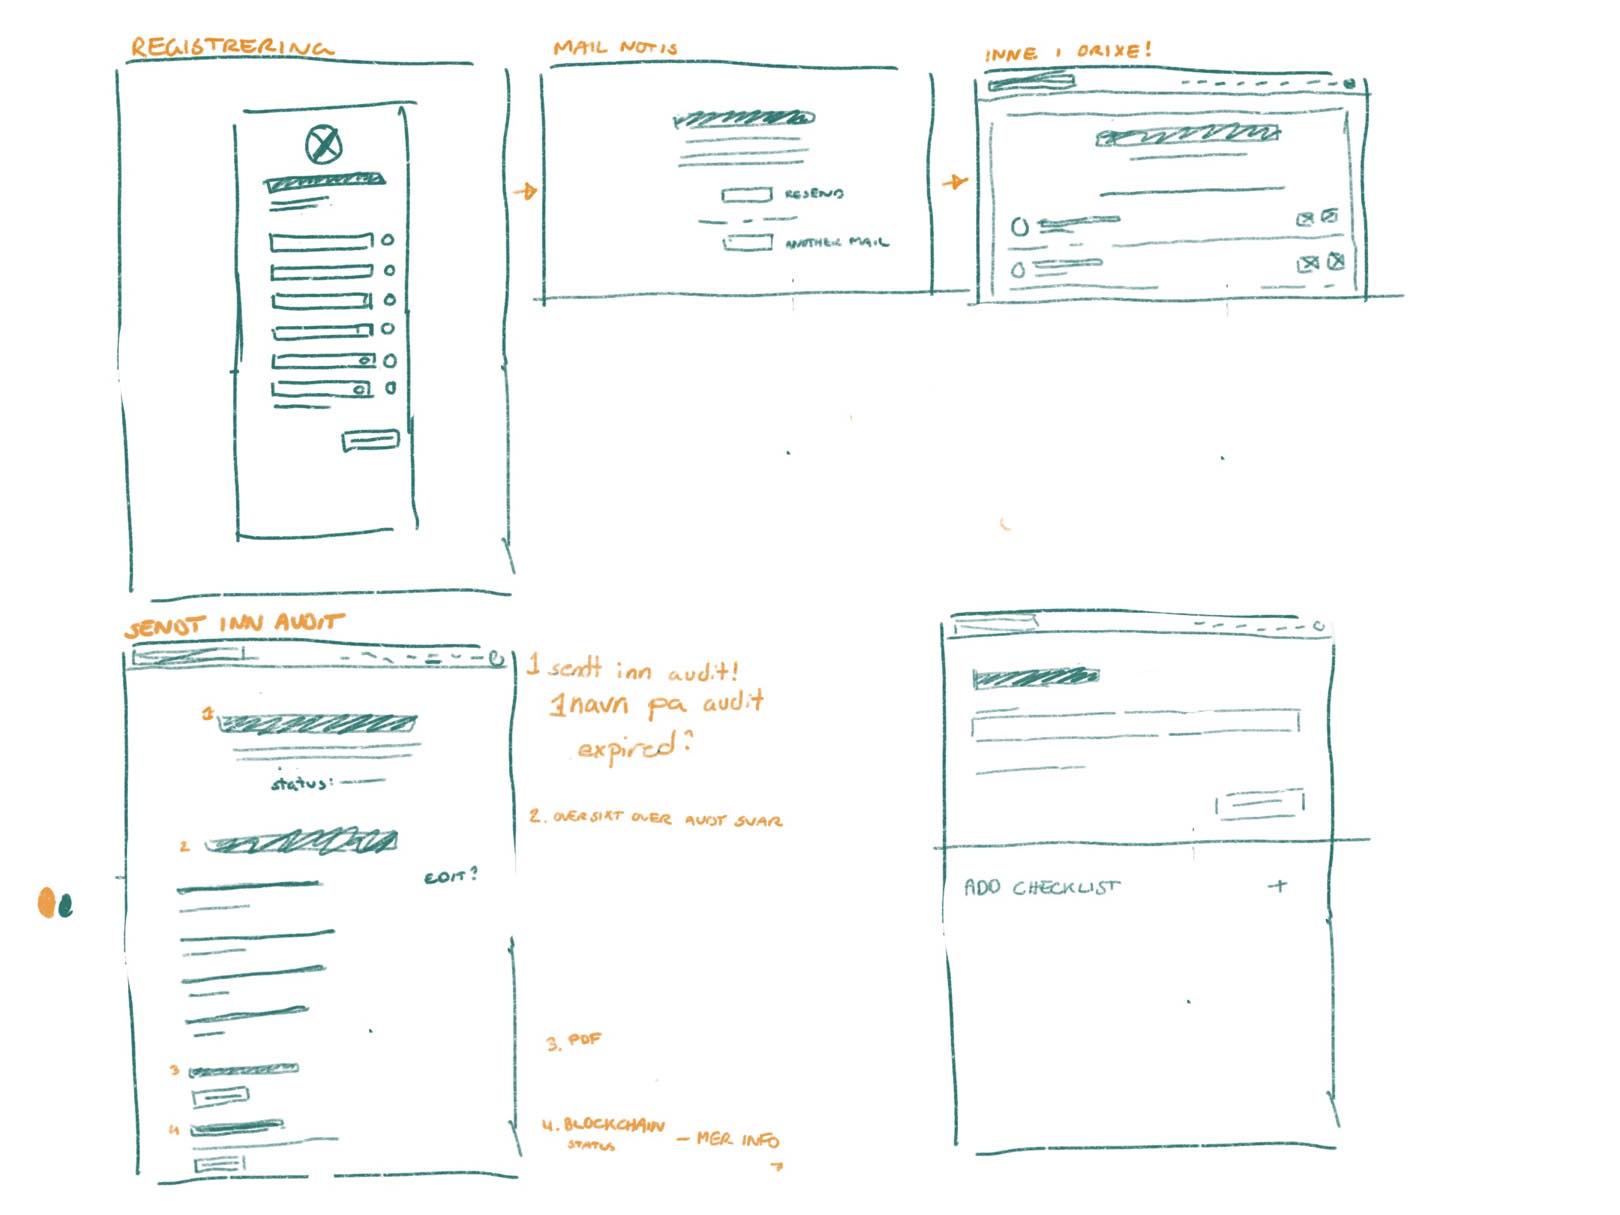 REGISTRERING
MAIL NOTIS
RESEND
ANOTHER MAIL
INNE I ORIXE!
SENDT INN AUDIT
1
status:
2
EDIT?
3
4
1 sendt inn audit!
1 navn pa audit
expired?
2. OVERSIKT OVER AUDIT SVAR
3. PDF
4. BLOCKCHAIN
STATUS
– MER INFO
ADD CHECKLIST +